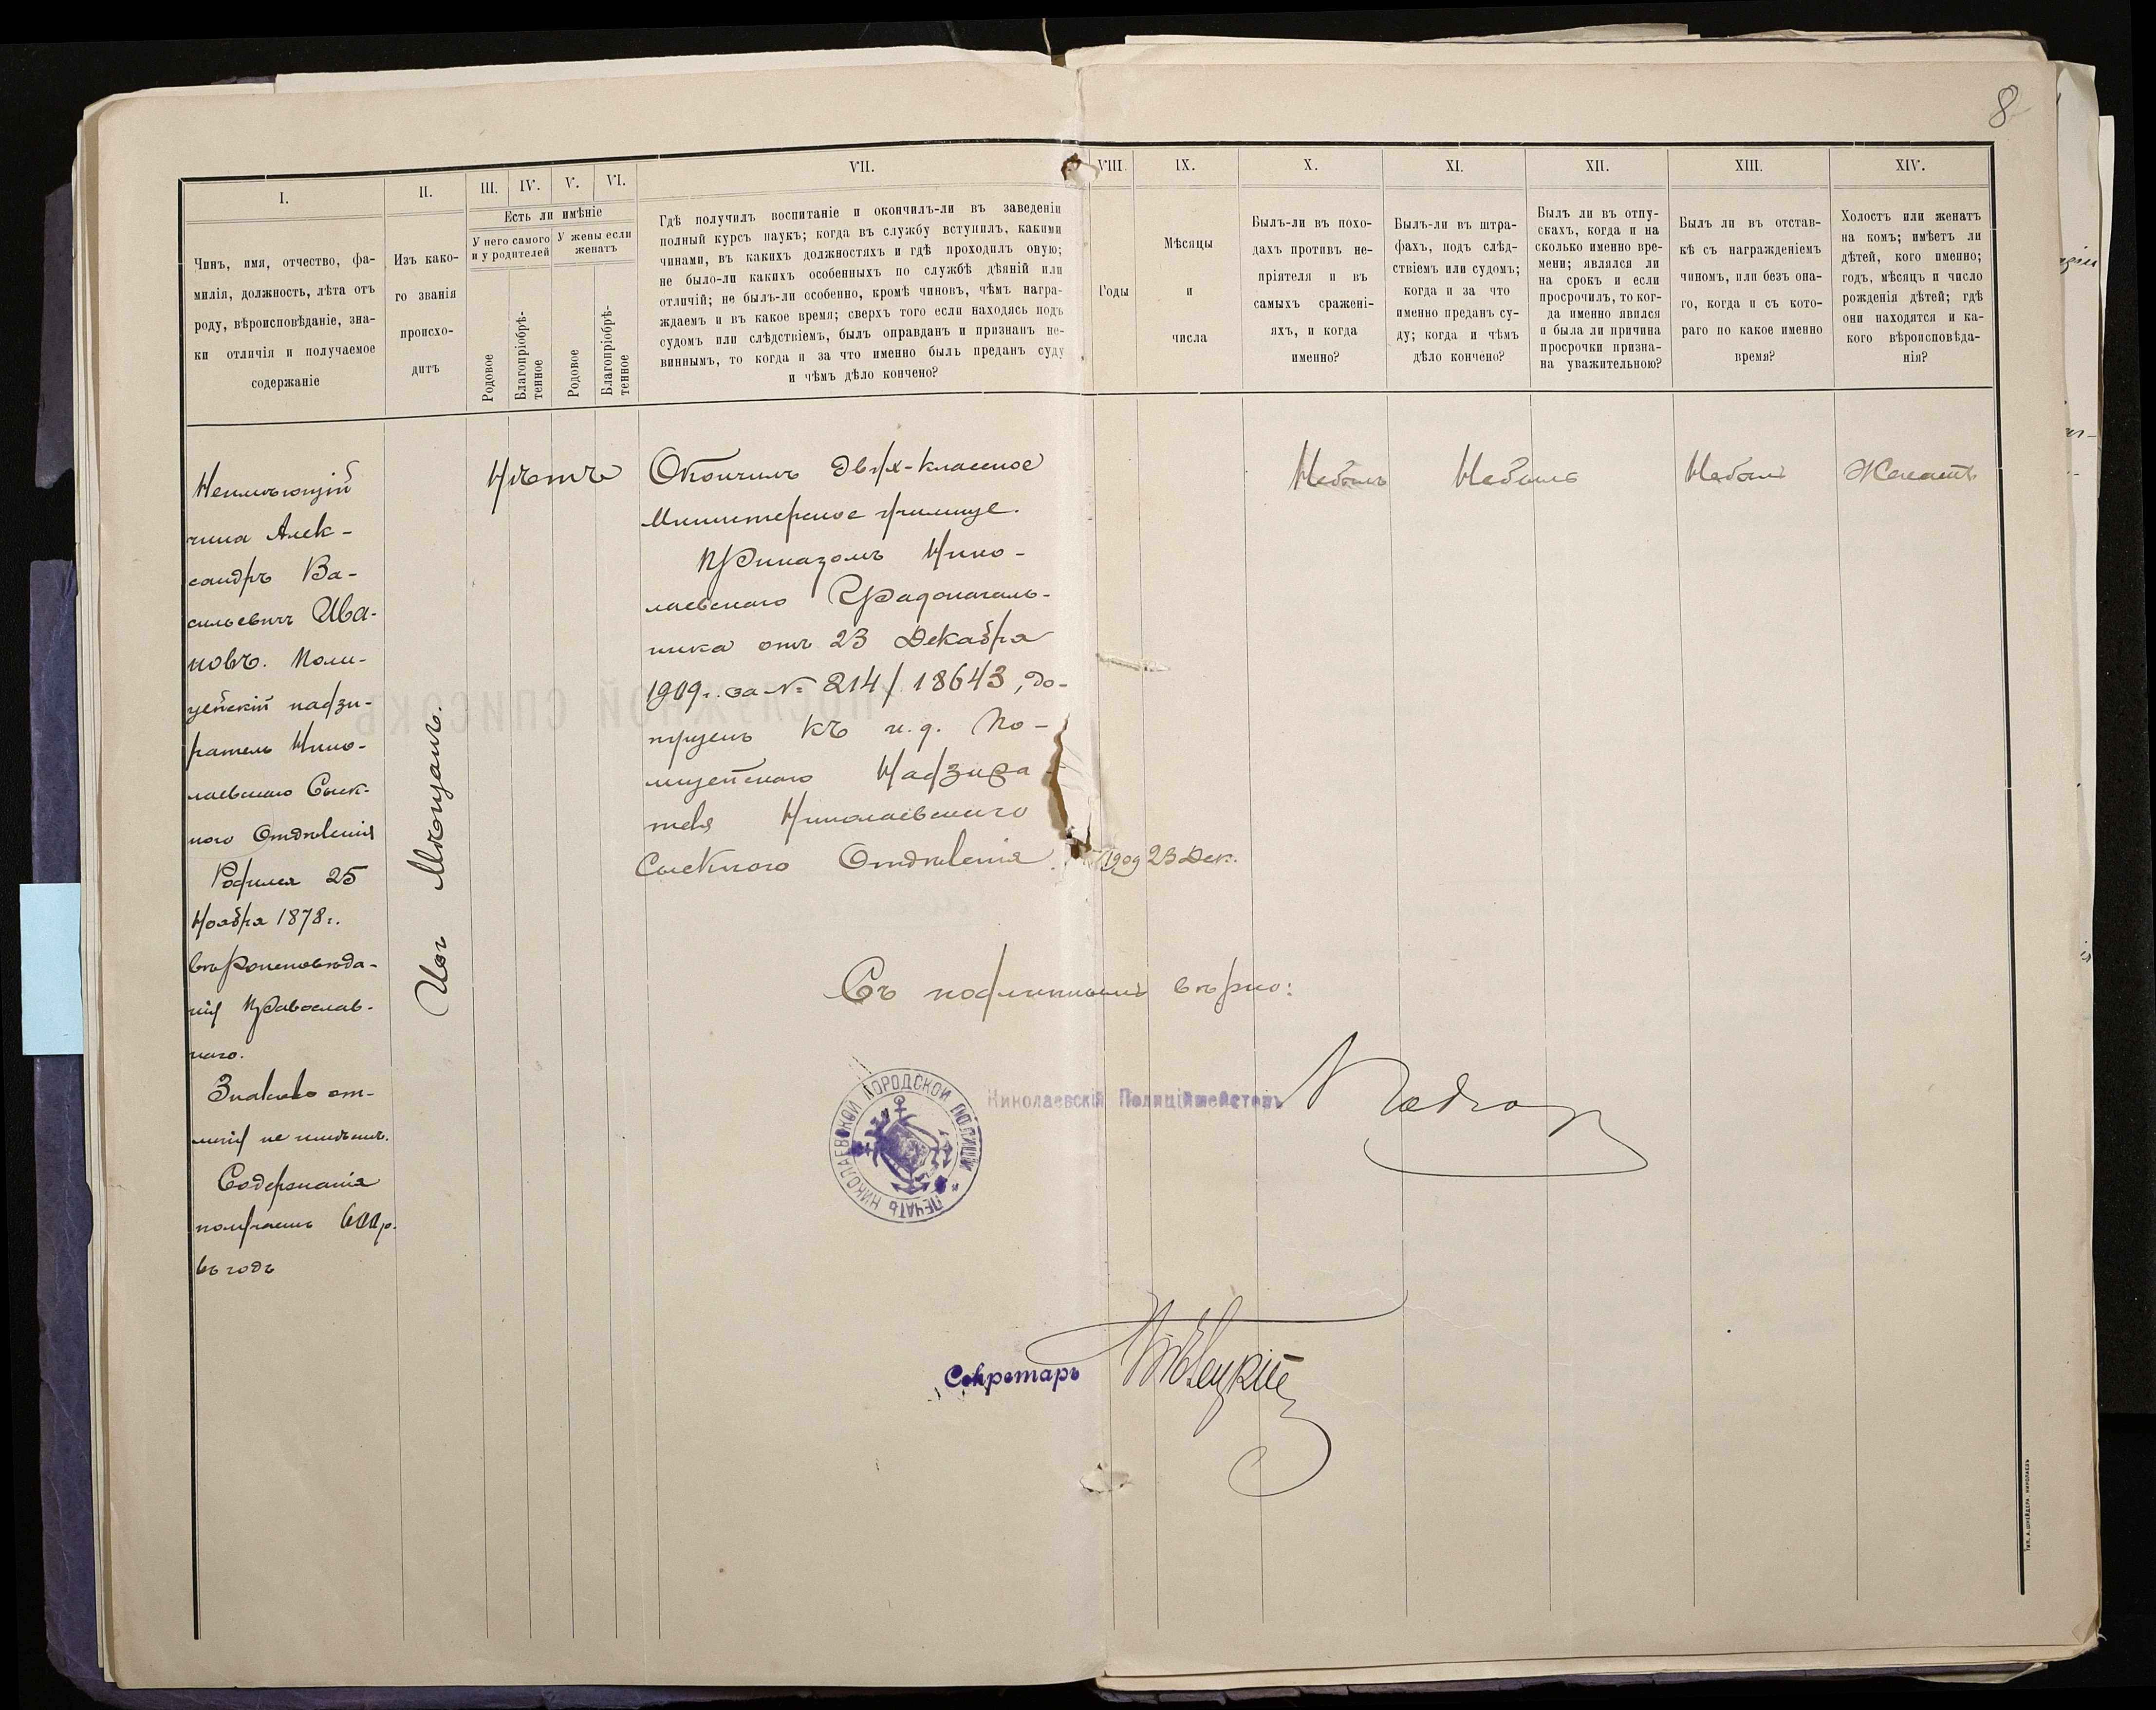 8
I.
II.
III.
IV.
V.
VI.
VII.
VIII.
IX.
X.
XI.
XII.
XIII.
XIV.
Чинъ, имя, отчество, фа-
милія, должность, лѣта отъ
роду, вѣроисповѣданіе, зна-
ки отличія и получаемое
содержаніе
Изъ како-
го званія
происхо-
дитъ
Есть ли имѣніе
У него самого
и у родителей
У жены если
женатъ
Родовое
Благопріобрѣ-
тенное
Родовое
Благопріобрѣ-
тенное
Гдѣ получилъ воспитаніе и окончилъ-ли въ заведеніи
полный курсъ наукъ; когда въ службу вступилъ, какими
чинами, въ какихъ должностяхъ и гдѣ проходилъ оную;
не было-ли какихъ особенныхъ по службѣ дѣяній или
отличій; не былъ-ли особенно, кромѣ чиновъ, чѣмъ награ-
ждаемъ и въ какое время; сверхъ того если находясь подъ
судомъ или слѣдствіемъ, былъ оправданъ и признанъ не-
виннымъ, то когда и за что именно быль преданъ суду
и чѣмъ дѣло кончено?
Годы
Мѣсяцы
и
числа
Былъ-ли въ похо-
дахъ противъ не-
пріятеля и въ
самыхъ сражені-
яхъ, и когда
именно?
Былъ-ли въ штра-
фахъ, подъ слѣд-
ствіемъ или судомъ;
когда и за что
именно преданъ су-
ду; когда и чѣмъ
дѣло кончено?
Былъ ли въ отпу-
скахъ, когда и на
сколько именно вре-
мени; являлся ли
на срокъ и если
просрочилъ, то ког-
да именно явился
и была ли причина
просрочки призна-
на уважительною?
Былъ ли въ отстав-
кѣ съ награжденіемъ
чиномъ, или безъ она-
го, когда и съ кото-
раго по какое именно
время?
Холостъ или женатъ
на комъ; имѣетъ ли
дѣтей, кого именно;
годъ, мѣсяцъ и число
рожденія дѣтей; гдѣ
они находятся и ка-
кого вѣроисповѣда-
нія?
Неимѣющій
чина Алек-
сандръ Ва-
сильевичъ Ива-
новъ. Поли-
цейскій надзи-
ратель Нико-
лаевскаго Сыск-
ного Отдѣленія
Родился 25
Ноября 1878 г.
вѣроисповѣда-
нія Православ-
наго.
Знаковъ от-
личія не имѣетъ.
Содержанія
получаетъ 600 р.
въ годъ
Изъ Мѣщанъ.
Нѣтъ
Окончилъ двух-классное
Министерское училище.
Приказомъ Нико-
лаевскаго Градоначаль-
ника отъ 23 Декабря
1909 г. за № 214/18643, до-
пущенъ къ и. д. По-
лицейскаго Надзира-
теля Николаевскаго
Сыскного Отдѣленія.
1909 23 Дек.
Небылъ
Небылъ
Небылъ
Женатъ
Съ подлиннымъ вѣрно:
Николаевскій Полиціймейстеръ
ПЕЧАТЬ НИКОЛАЕВСКОЙ ГОРОДСКОЙ ПОЛИЦІИ
Секретарь
ПОСЛУЖНОЙ СПИСОКЪ
Тип. А. ШНЕЙДЕРА НИКОЛАЕВЪ